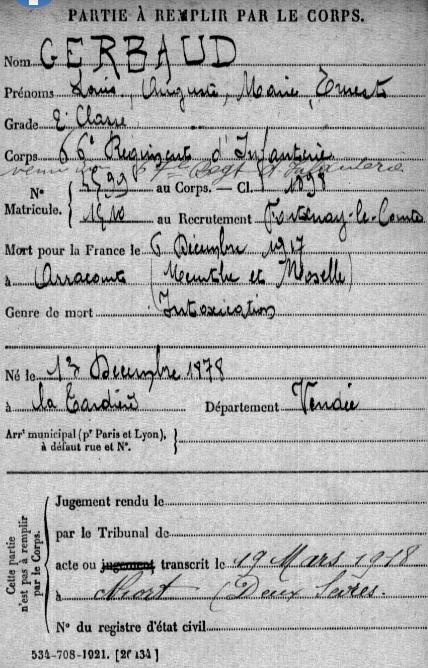 PARTIE À REMPLIR PAR LE CORPS.
Nom GERBAUD
Prénoms Louis, Auguste, Marie, Ernest
Grade 2e Classe
Corps 66e Régiment d'Infanterie
venu du Regt d'Infanterie
N° Matricule. { 5599 au Corps. — Cl. 1898
1210 au Recrutement Fontenay-le-Comte
Mort pour la France le 6 Décembre 1917
à Arracourt (Meurthe et Moselle)
Genre de mort Intoxication
Né le 13 Décembre 1878
à la Tardière Département Vendée
Arrt municipal (pr Paris et Lyon),
à défaut rue et N°. }
Cette partie n'est pas à remplir par le Corps.
Jugement rendu le
par le Tribunal de
acte ou jugement transcrit le 19 Mars 1918
à Niort (Deux Sèvres.
N° du registre d'état civil
534-708-1921. [26434]